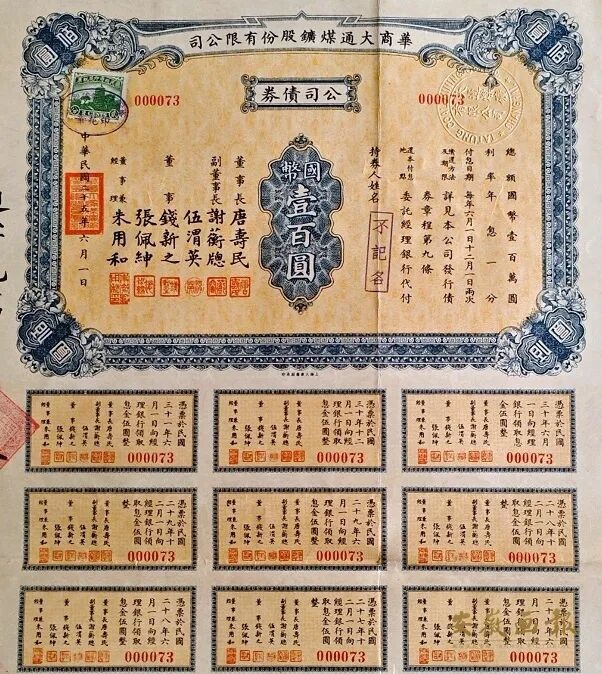 華商大通煤鑛股份有限公司
公司債券
000073
000073
總額國幣壹百萬圓
利率年息一分
付息日期 每年六月一日十二月一日兩次
償還方法及期限 詳見本公司發行債券章程第九條
還本付息地點 委託經理銀行代付
持券人姓名 不記名
國幣壹百圓
董事長 唐壽民
副董事長 謝蘅牕
伍渭英
董事 錢新之
張佩紳
董事兼經理 朱用和
中華民國二十五年六月一日
佰圓
佰圓
佰圓
佰圓
憑票於民國三十年六月一日向經理銀行領取息金伍圓整
000073
憑票於民國三十年十二月一日向經理銀行領取息金伍圓整
000073
憑票於民國三十一年六月一日向經理銀行領取息金伍圓整
000073
憑票於民國二十八年十二月一日向經理銀行領取息金伍圓整
000073
憑票於民國二十九年六月一日向經理銀行領取息金伍圓整
000073
憑票於民國二十九年十二月一日向經理銀行領取息金伍圓整
000073
000073
憑票於民國二十七年十二月一日向經理銀行領取息金伍圓整
000073
憑票於民國二十八年六月一日向經理銀行領取息金伍圓整
000073